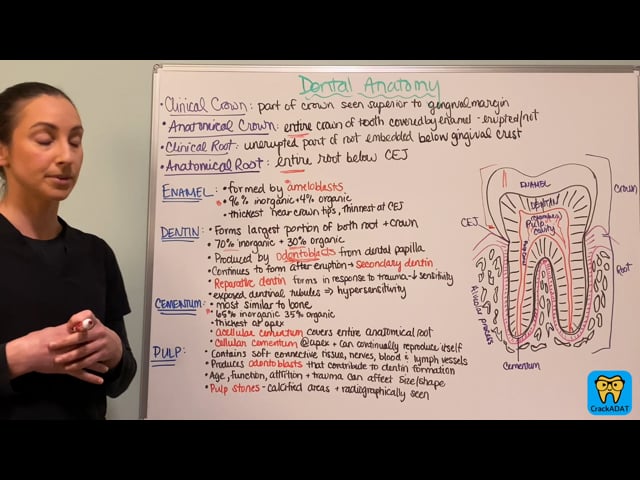 Dental Anatomy
• Clinical Crown: part of crown seen superior to gingival margin
• Anatomical Crown: entire crown of tooth covered by enamel - erupted/not
• Clinical Root: unerupted part of root embedded below gingival crest
• Anatomical Root: entire root below CEJ
ENAMEL:
• formed by ameloblasts
• 96% inorganic + 4% organic
• thickest near crown tips, thinnest at CEJ
DENTIN:
• Forms largest portion of both root + crown
• 70% inorganic + 30% organic
• Produced by odontoblasts from dental papilla
• Continues to form after eruption → secondary dentin
• Reparative dentin forms in response to trauma - ↓ sensitivity
• exposed dentinal tubules ⇒ hypersensitivity
CEMENTUM:
• most similar to bone
• 65% inorganic 35% organic
• thickest at apex
• acellular cementum covers entire anatomical root
• Cellular cementum @ apex + can continually reproduce itself
PULP:
• Contains soft connective tissue, nerves, blood + lymph vessels
• Produces odontoblasts that contribute to dentin formation
• Age, function, attrition + trauma can affect size/shape
• Pulp stones - calcified areas + radiographically seen
ENAMEL
DENTIN
Pulp
cavity
CEJ
Crown
Root
Alveolar process
Cementum
CrackADAT